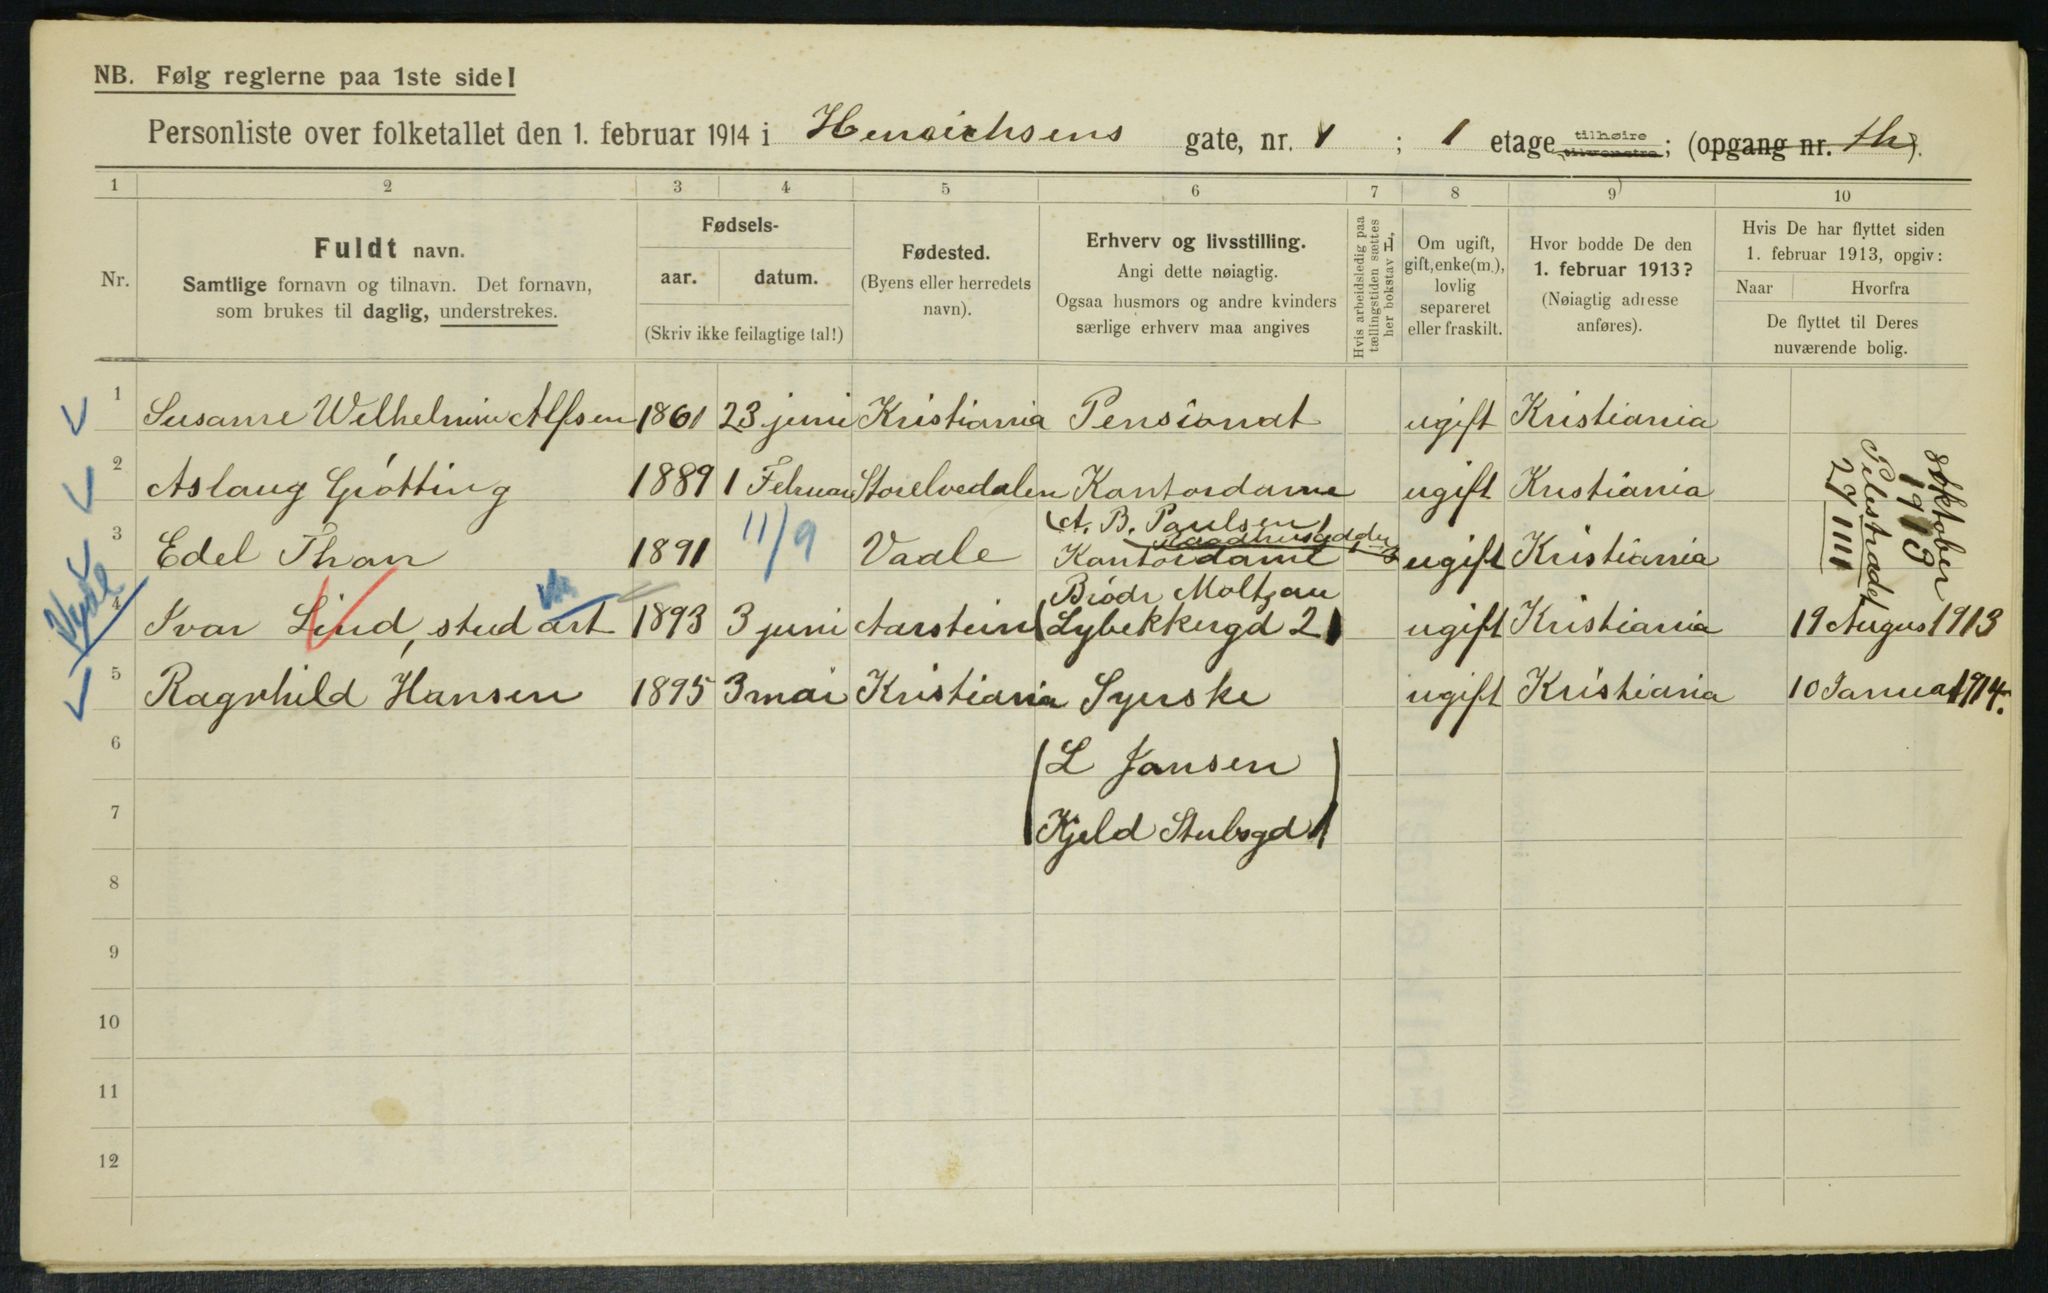 NB. Følg reglerne paa 1ste side!
Personliste over folketallet den 1. februar 1914 i Henrichsens gate, nr. 1 ; 1 etage tilhøire tilvenstre; (opgang nr. th).
1 2 3 4 5 6 7 8 9 10
Nr.
Fuldt navn.
Samtlige fornavn og tilnavn. Det fornavn,
som brukes til daglig, understrekes.
Fødsels-
aar. datum.
(Skriv ikke feilagtige tal!)
Fødested.
(Byens eller herredets
navn).
Erhverv og livsstilling.
Angi dette nøiagtig.
Ogsaa husmors og andre kvinders
særlige erhverv maa angives
Hvis arbeidsledig paa
tællingstiden sættes
her bokstav L,
Om ugift,
gift, enke(m.),
lovlig
separeret
eller fraskilt.
Hvor bodde De den
1. februar 1913?
(Nøiagtig adresse
anføres).
Hvis De har flyttet siden
1. februar 1913, opgiv:
Naar Hvorfra
De flyttet til Deres
nuværende bolig.
1 Susanne Wilhelmine Alfsen 1861 23 juni Kristiania Pensionat ugift Kristiania
2 Aslaug Grötting 1889 1 Februar Storelvedalen Kontordame ugift Kristiania
(A. B. Paulsen
3 Edel Thon 1891 11/9 Vaale Kontordame ugift Kristiania
8 oktober
1913
Pilestrædet
27 III
Brödr Moltzau
4 Ivar Lind, stud art 1893 3 juni Aarstein (Lybekkergd 2) ugift Kristiania 19 August 1913
5 Ragnhild Hansen 1895 3 mai Kristiania Syerske ugift Kristiania 10 Januar 1914.
6 (L Jansen
7 Kjeld Stubsgd 1)
8
9
10
11
12